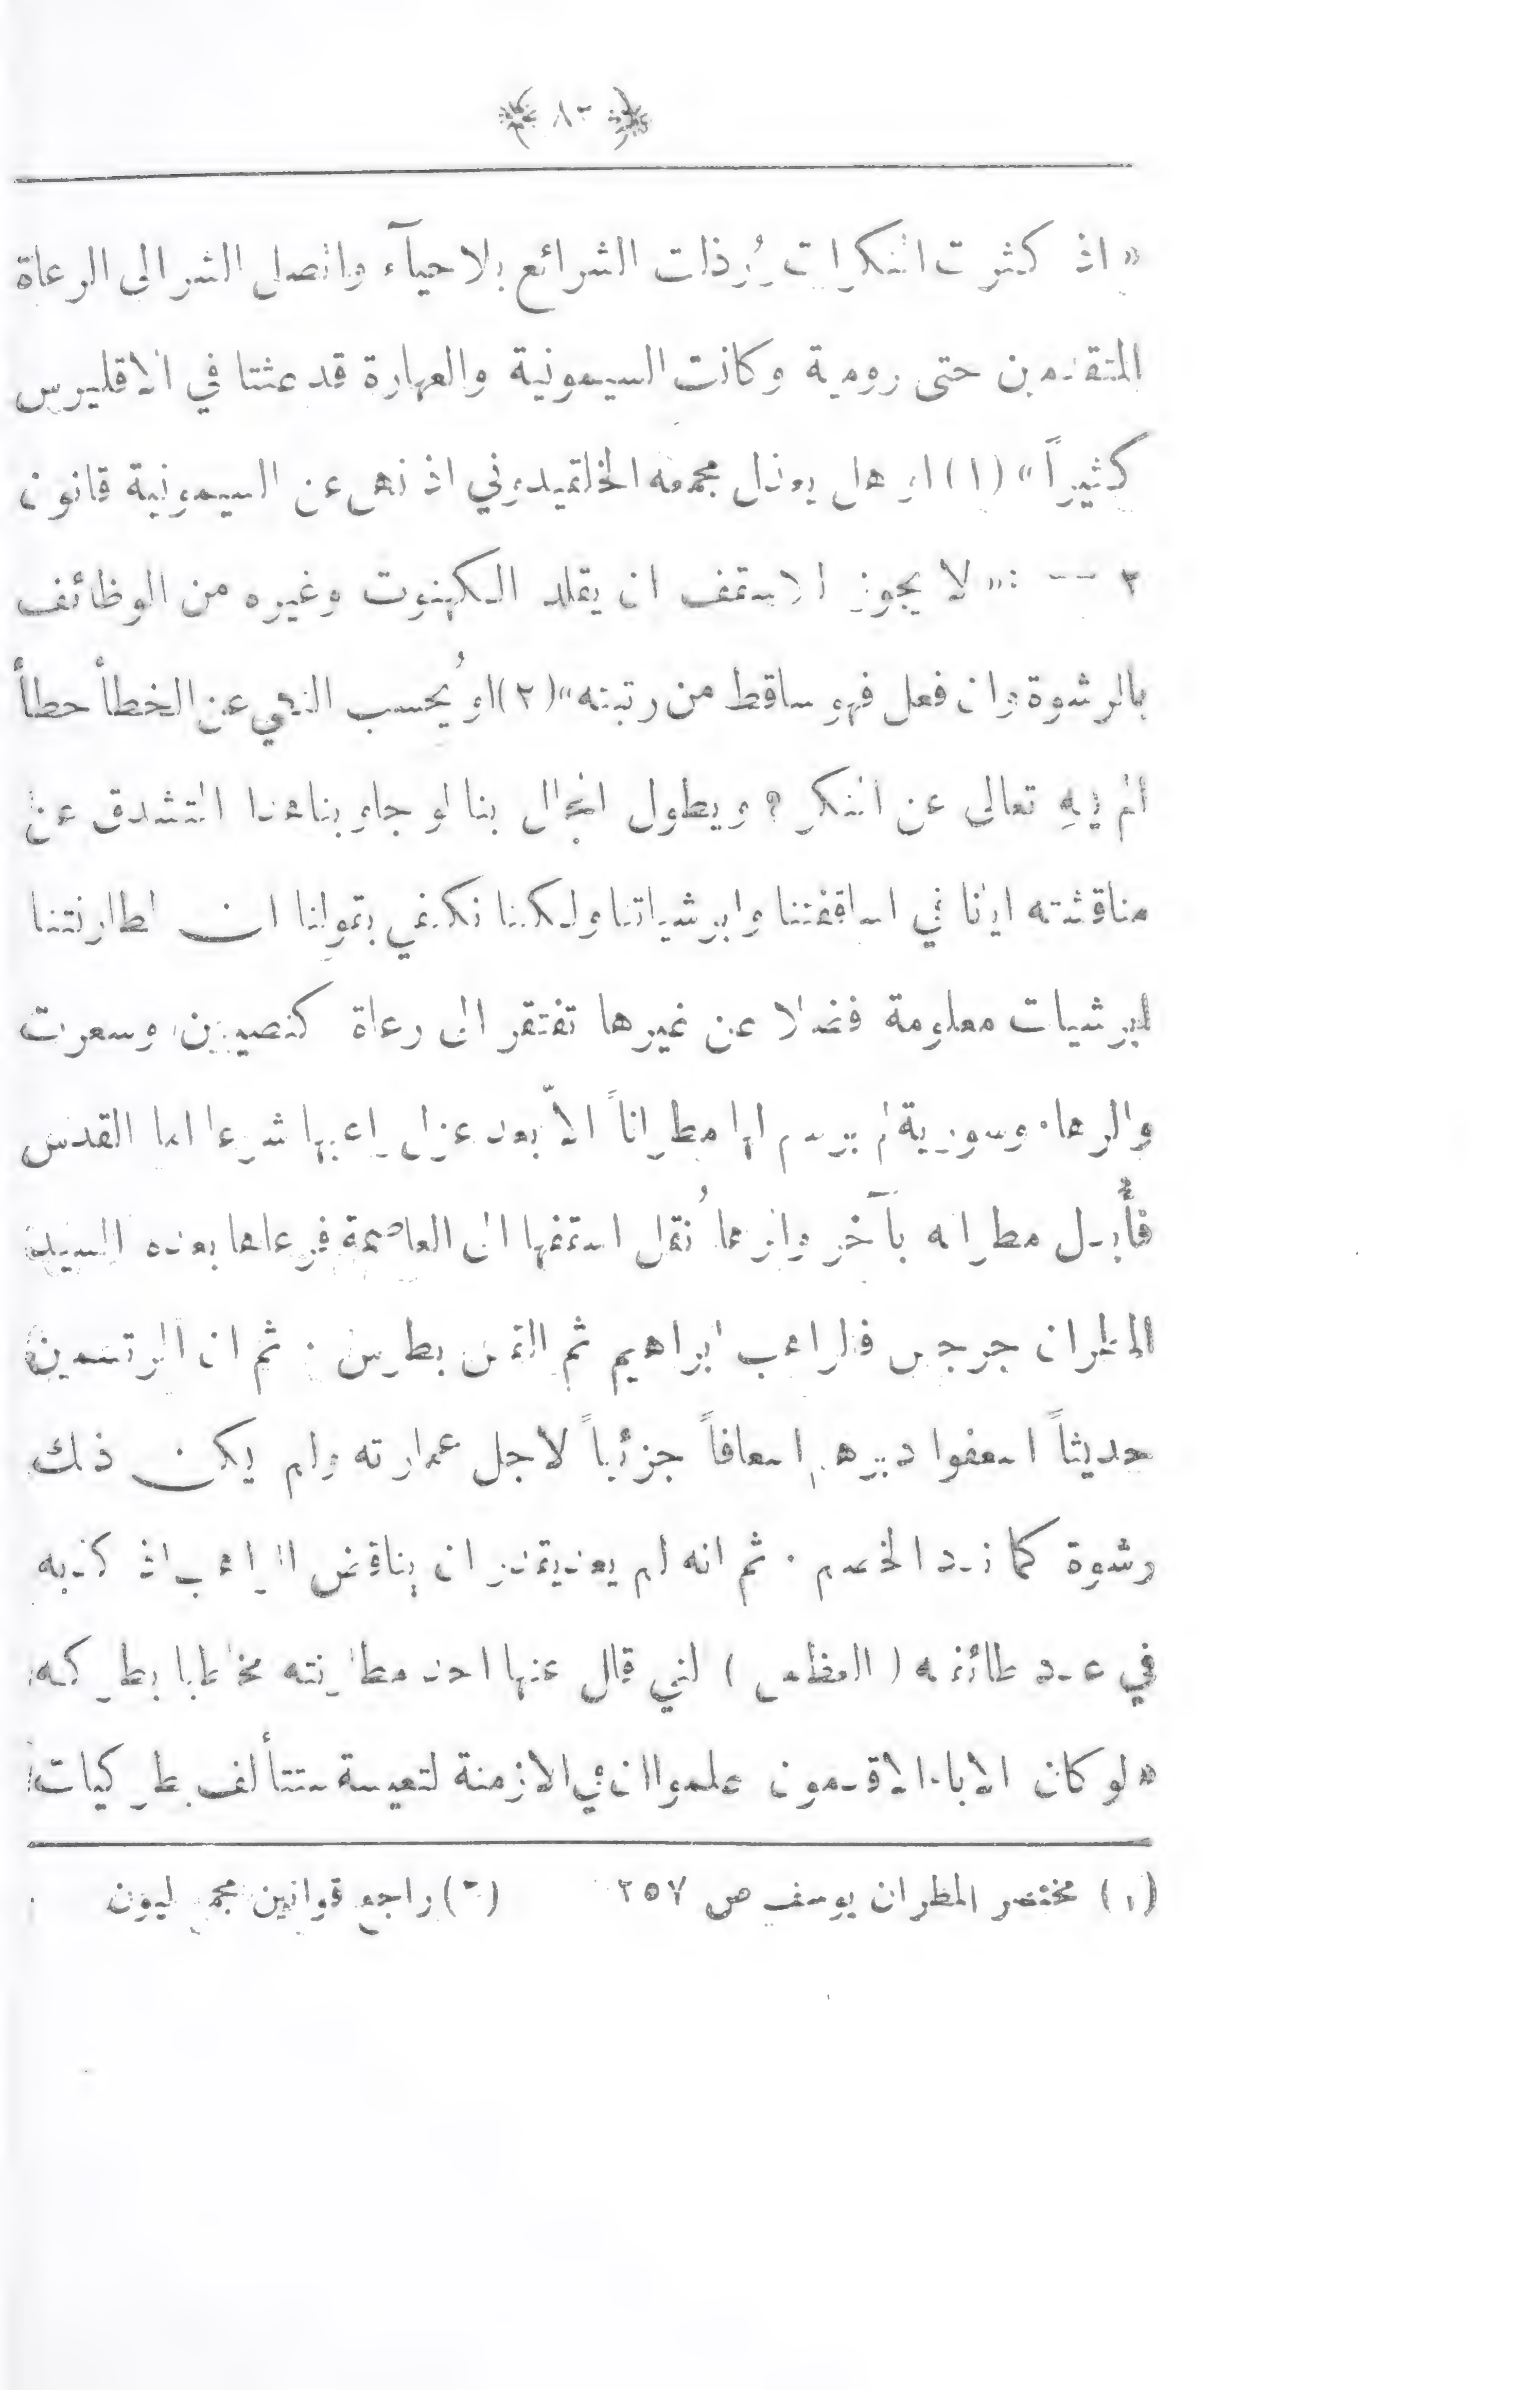 « اذ كثرت المنكرات ورُذات الشرائع بلا حيآء واتصل الشر الى الرعاة
المتقدمين حتى رومية وكانت السيمونية والعهارة قد عثتا في الاقليرس
كثيراً » (١) او هل يعذل مجمعه الخلقيدوني اذ نهى عن السيمونية قانون
٢ — : « لا يجوز لاسقف ان يقلد الكهنوت وغيره من الوظائف
بالرشوة وان فعل فهو ساقط من رتبته » (٢) او يُحسب النهي عن الخطأ خطأ
الم ينهِ تعالى عن المنكر ؟ ويطول المجال بنا لو جاوبناه عن
مناقشته ايانا في اساقفتنا وابرشياتنا ولكننا نكتفي بقولنا ان لمطارنتنا
ابرشيات معلومة فضلا عن غيرها تفتقر الى رعاة كنصيبين وسعرت
والرها. وسورية لم يرسم لها مطراناً الاّ بعد عزل راعيها شرعا اما القدس
فأُبدل مطرانه بآخر نُقل اسقفها الى العاصمة فرعاها بعده السيد
المطران جرجس فالراهب ابراهيم ثم القس بطرس . ثم ان المرتسمين
حديثاً اسعفوا ديرهم اسعافاً جزئياً لاجل عمارته ولم يكن ذلك
رشوة كما الخصم . ثم انه لم يعد يقدر ان يناقض الراهب اذ كذبه
في عدد طائفته ( ) التي قال عنها احد مطارنته مخاطبا بطريركه
« لو كان الاباء الاقدمون علموا ان في الازمنة التعيسة ستتألف بطريركيات
(١) مختصر المطران يوسف ص ٢٥٧ (٢) راجع قوانين مجمع ليون